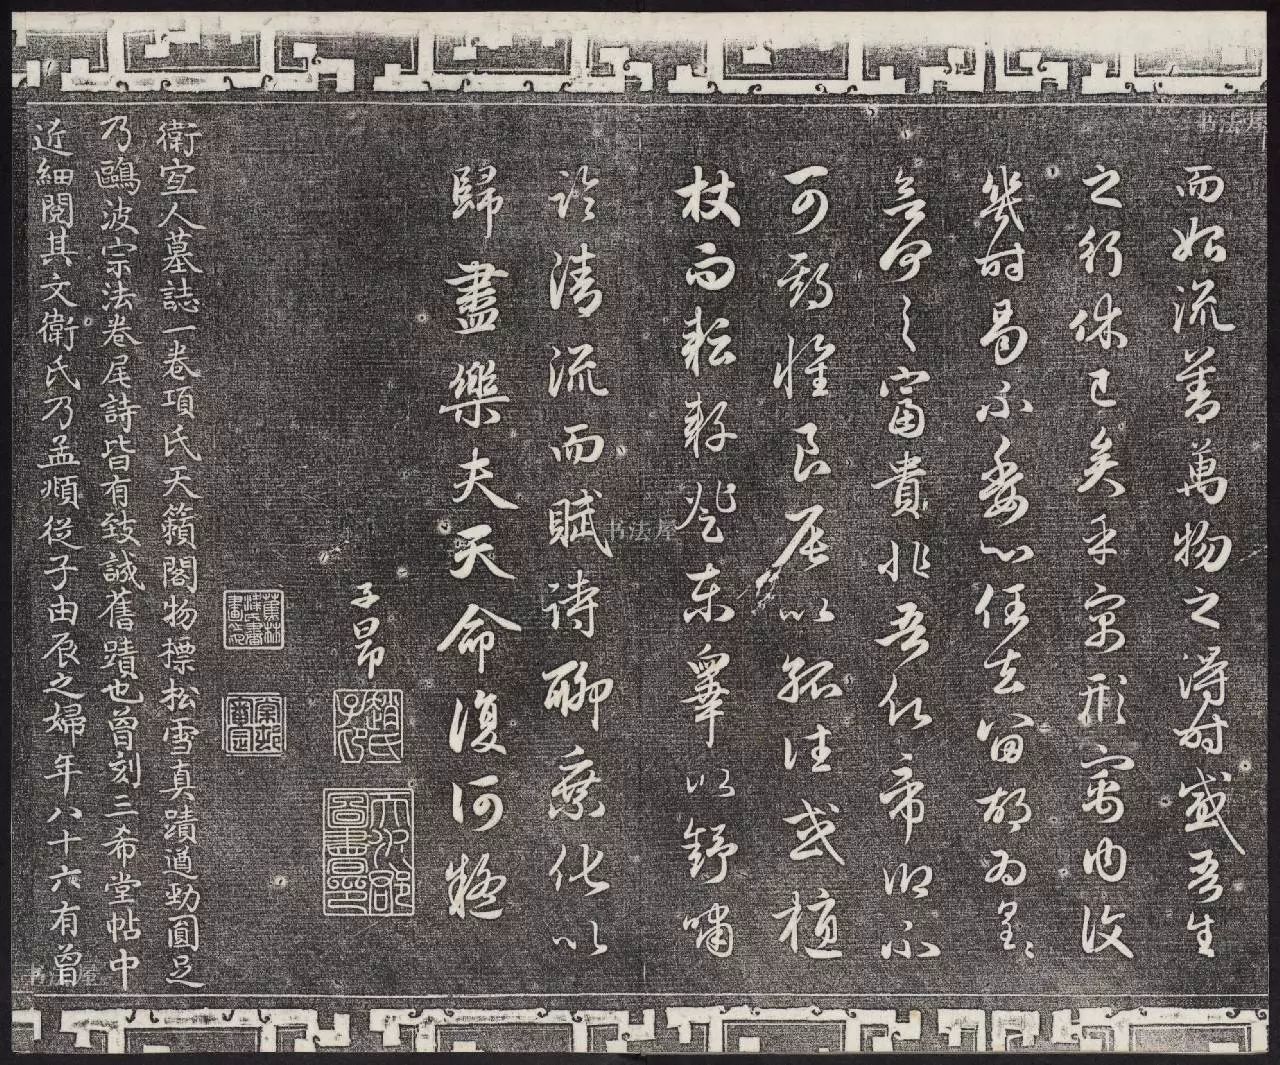 而始流善萬物之得時感吾生
之行休已矣乎寓形寓内復
幾時曷不委心任去留胡為皇〻
兮何之富貴非吾願帝鄉不
可期懷良辰以孤往或植
杖而耘耔登東皋以舒嘯
臨清流而賦詩聊乘化以
歸盡樂夫天命復何疑
子昂
趙氏子昂
天水郡圖書印
衛宜人墓誌一卷項氏天籟閣物標松雪真蹟遒勁圓足
乃鷗波宗法卷尾詩皆有致誠舊蹟也曾刻三希堂帖中
近細閱其文衛氏乃孟頫從子由辰之婦年八十六有曾
书法屋
书法屋
书法屋